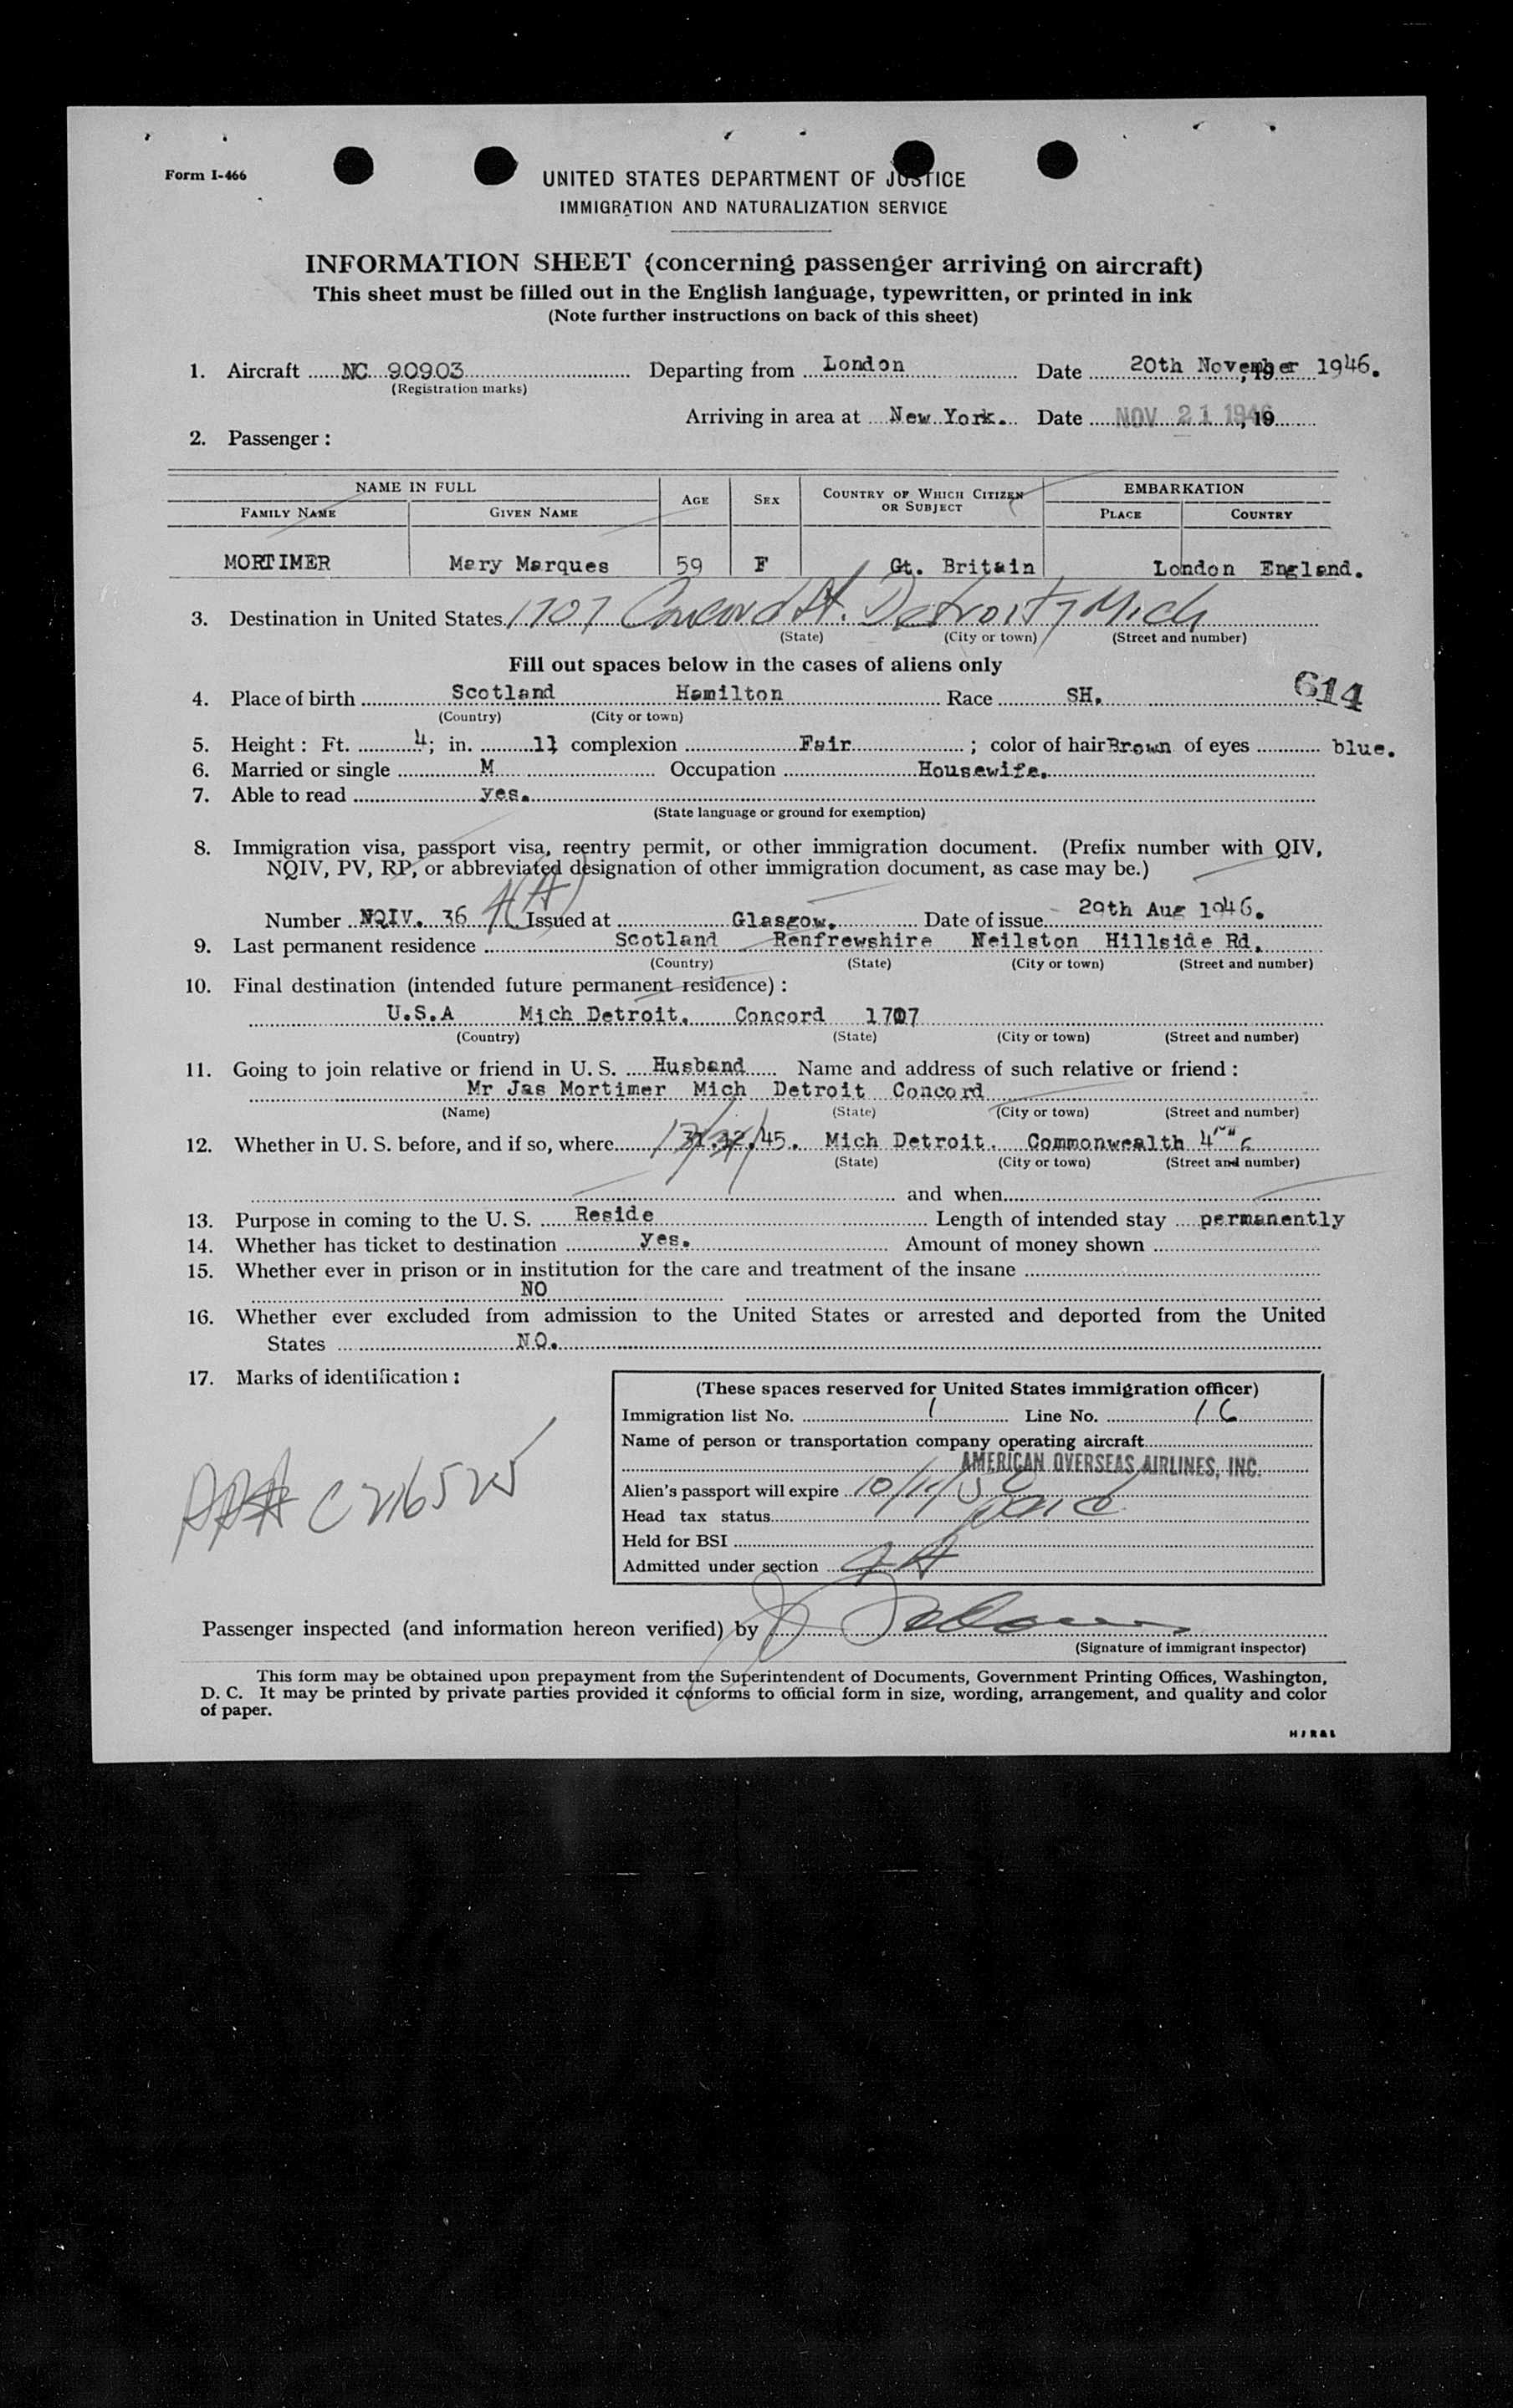 Form I-466
UNITED STATES DEPARTMENT OF JUSTICE
IMMIGRATION AND NATURALIZATION SERVICE
INFORMATION SHEET (concerning passenger arriving on aircraft)
This sheet must be filled out in the English language, typewritten, or printed in ink
(Note further instructions on back of this sheet)
1. Aircraft NC 90903 Departing from London Date 20th November, 19 1946.
(Registration marks)
Arriving in area at New York. Date NOV 21 1946, 19
2. Passenger :
NAME IN FULL AGE SEX COUNTRY OF WHICH CITIZEN OR SUBJECT EMBARKATION
FAMILY NAME GIVEN NAME PLACE COUNTRY
MORTIMER Mary Marques 59 F Gt. Britain London England.
3. Destination in United States 1707 Concord St. Detroit, Mich
(State) (City or town) (Street and number)
Fill out spaces below in the cases of aliens only
614
4. Place of birth Scotland Hamilton Race SH.
(Country) (City or town)
5. Height : Ft. 4; in. 11 complexion Fair ; color of hair Brown of eyes blue.
6. Married or single M Occupation Housewife.
7. Able to read yes.
(State language or ground for exemption)
8. Immigration visa, passport visa, reentry permit, or other immigration document. (Prefix number with QIV,
NQIV, PV, RP, or abbreviated designation of other immigration document, as case may be.)
Number NQIV. 36 4(A) Issued at Glasgow. Date of issue 29th Aug 1946.
9. Last permanent residence Scotland Renfrewshire Neilston Hillside Rd.
(Country) (State) (City or town) (Street and number)
10. Final destination (intended future permanent residence) :
U.S.A Mich Detroit. Concord 1707
(Country) (State) (City or town) (Street and number)
11. Going to join relative or friend in U. S. Husband Name and address of such relative or friend :
Mr Jas Mortimer Mich Detroit Concord
(Name) (State) (City or town) (Street and number)
12. Whether in U. S. before, and if so, where 31.12.45. Mich Detroit. Commonwealth
(State) (City or town) (Street and number)
and when
13. Purpose in coming to the U. S. Reside Length of intended stay permanently
14. Whether has ticket to destination yes. Amount of money shown
15. Whether ever in prison or in institution for the care and treatment of the insane
NO
16. Whether ever excluded from admission to the United States or arrested and deported from the United
States NO.
17. Marks of identification :
(These spaces reserved for United States immigration officer)
Immigration list No. 1 Line No. 16
Name of person or transportation company operating aircraft
AMERICAN OVERSEAS AIRLINES, INC.
Alien's passport will expire
Head tax status paid
Held for BSI
Admitted under section 4A
PP# C 216525
Passenger inspected (and information hereon verified) by
(Signature of immigrant inspector)
This form may be obtained upon prepayment from the Superintendent of Documents, Government Printing Offices, Washington,
D. C. It may be printed by private parties provided it conforms to official form in size, wording, arrangement, and quality and color
of paper.